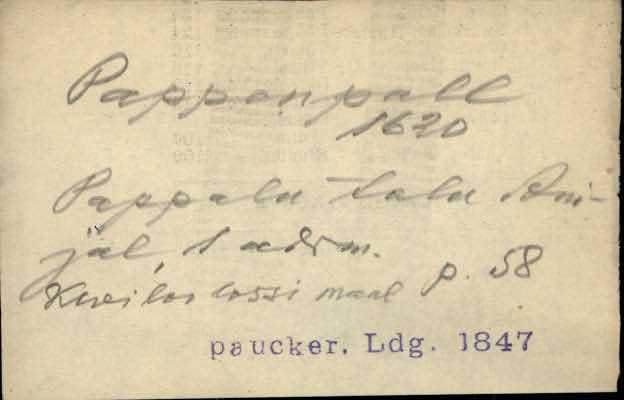 Pappenpall
1620
Pappalu talu Ani-
jäl, 1 adrm.
Kreilos lossi maal p. 58
paucker. Ldg. 1847